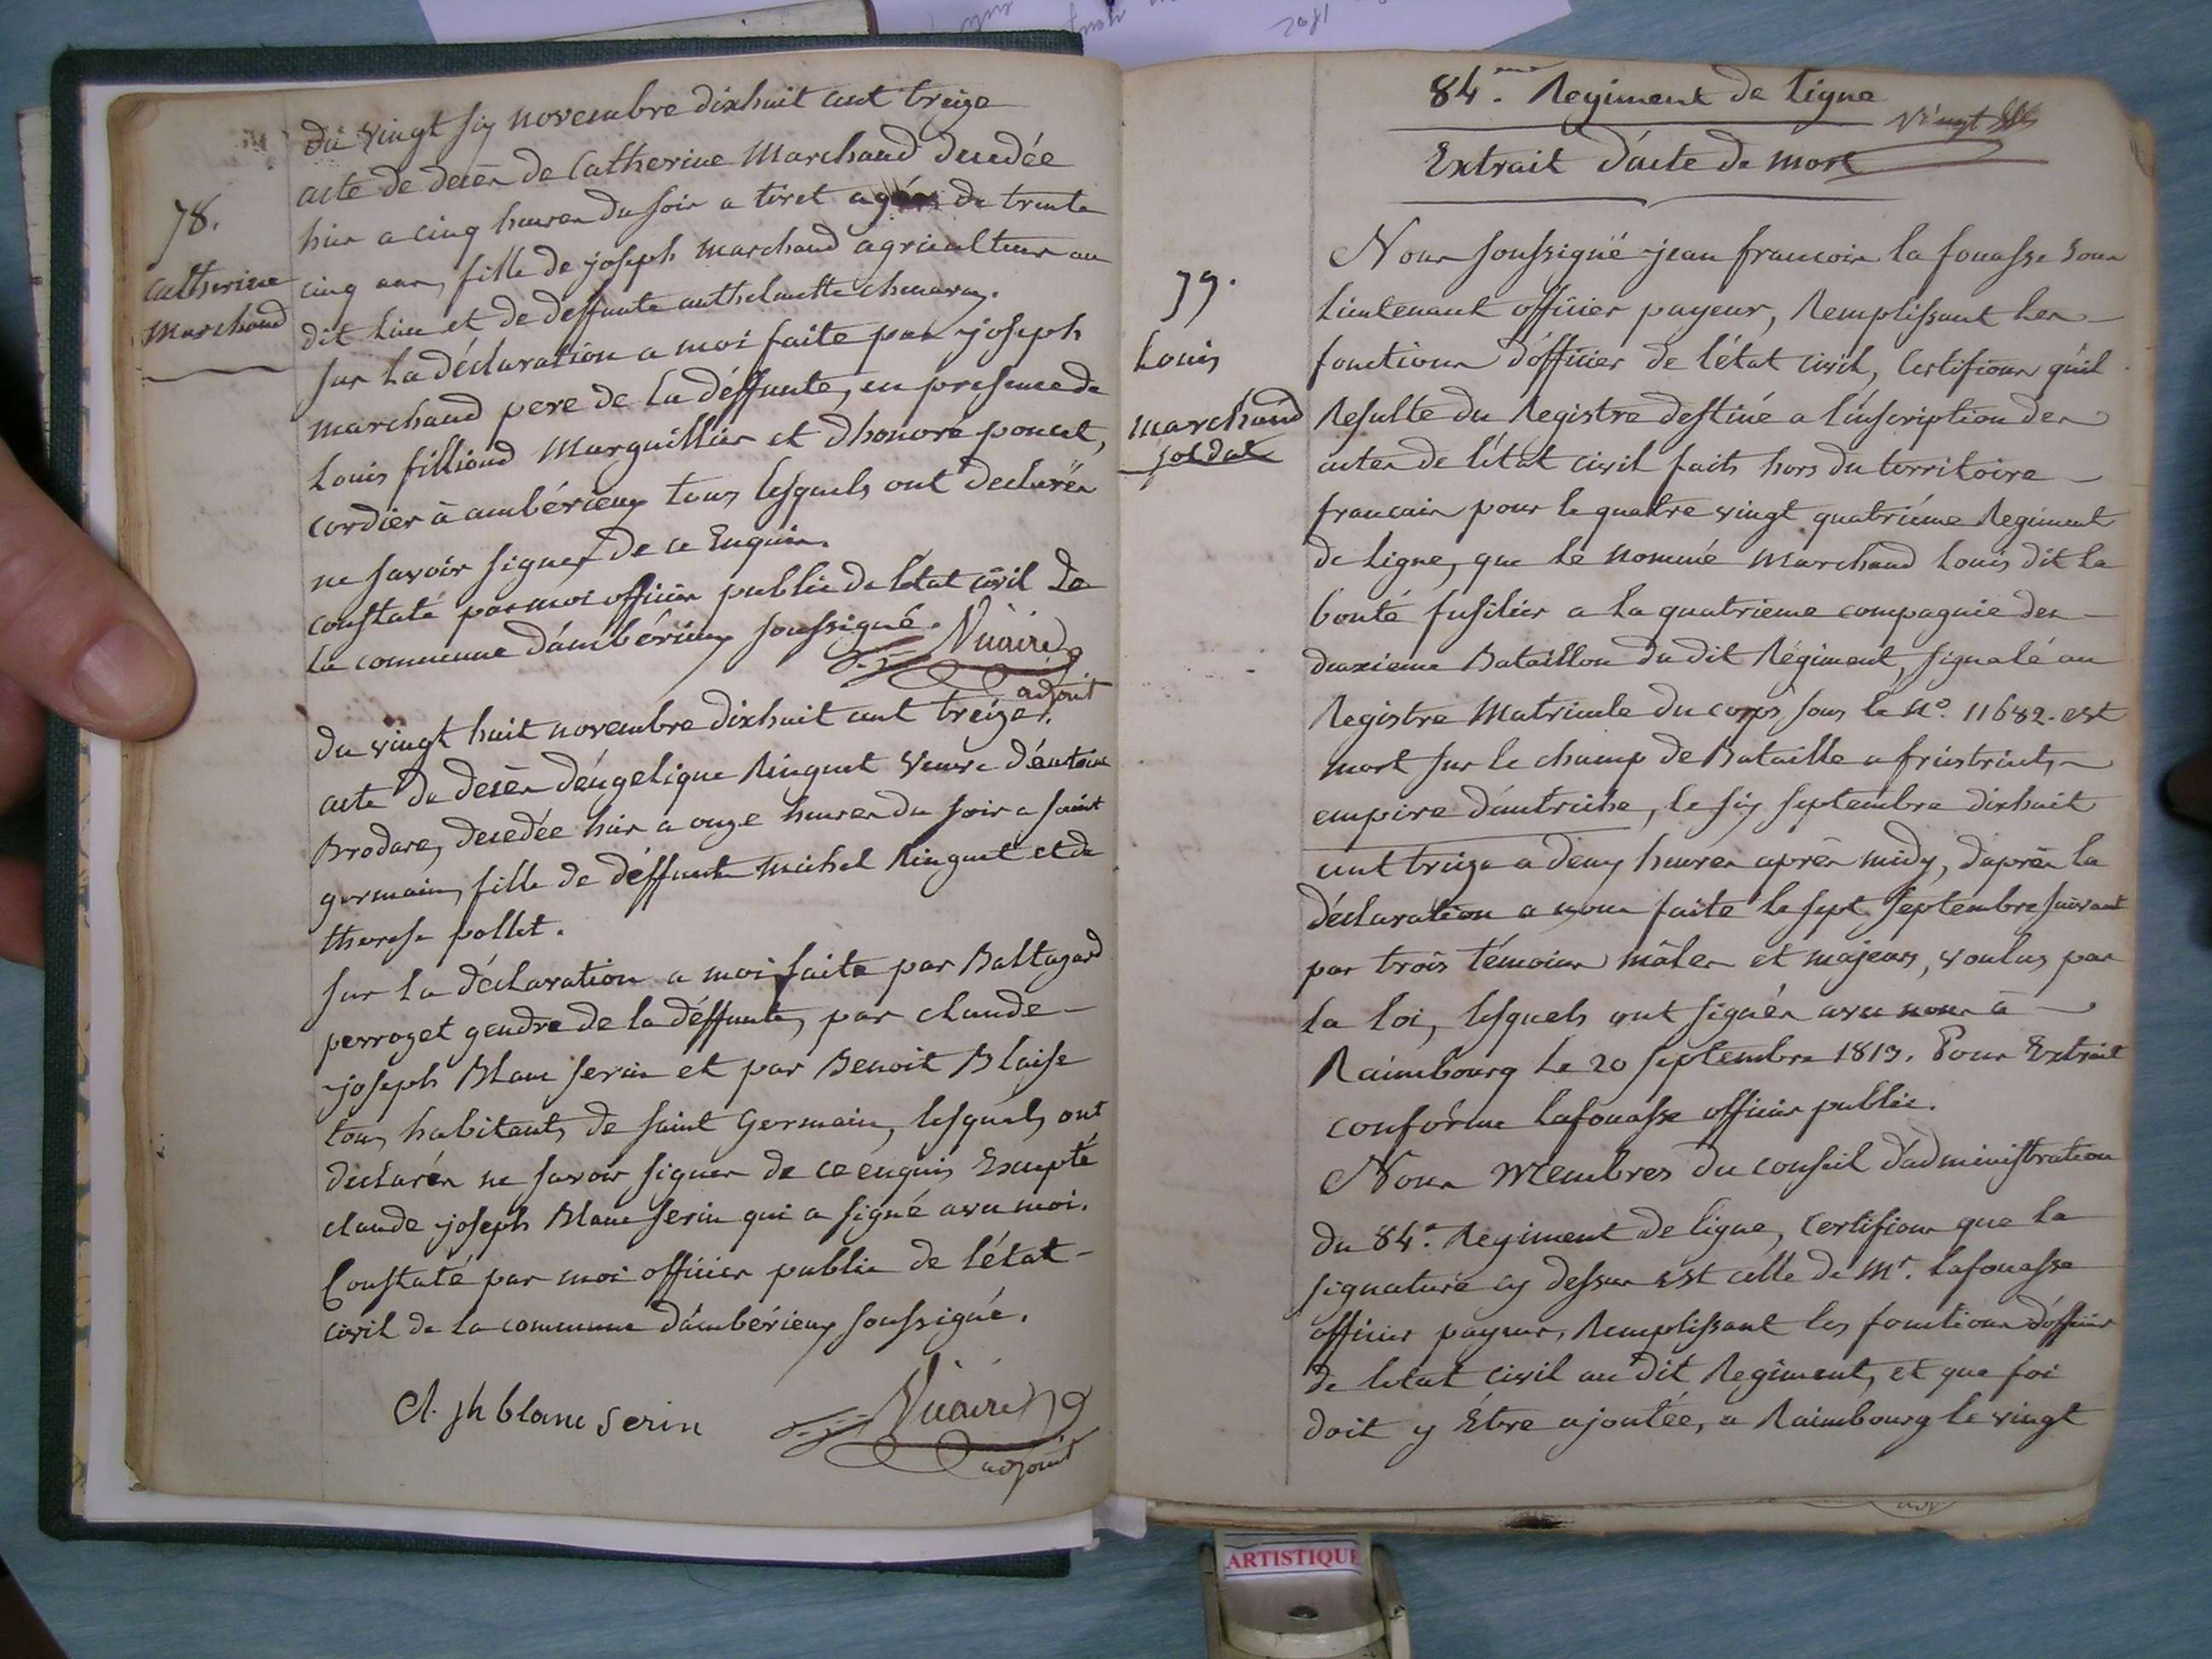 Du vingt six novembre dixhuit cent treize
acte de decès de Catherine Marchand decedée
hier a cinq heures du soir a tiret agée de trente
cinq ans, fille de joseph marchand agriculteur au
dit lieu et de deffunte anthelmette
sur la déclaration a moi faite par joseph
marchand pere de la déffunte, en presence de
Louis filliond Marguillier et d'honoré poncet,
cordier à ambérieux tous lesquels ont declarés
ne savoir signer de ce Enquis.
constaté par moi officier public de létat civil de
la commune d'ambérieux soussigné.
adjoint
78.
Catherine
Marchand
du vingt huit novembre dixhuit cent treize.
acte de decès d'éngelique Ringuet veuve d'éntoine
Brodare, decedée hier a onze heures du soir a saint
germain, fille de déffunt michel Ringuet et de
therese pollet.
sur la déclaration a moi faite par Baltazard
perrozet gendre de la déffunte, par claude
joseph Blanc serin et par Benoit Blaise
tous habitants de saint Germain, lesquels ont
declarés ne savoir signer de ce enquis Excepté
claude joseph Blanc serin qui a signé avec moi.
Constaté par moi officier public de l'état
civil de la commune d'ambérieux soussigné.
Cl. jh blanc serin
adjoint
84.eme Regiment de Ligne
vingt
Extrait d'acte de mort
79.
Louis
marchand
soldat
Nous soussigné jean francois la fouasse sous
Lieutenant officier payeur, Remplissant les
fonctions d'officier de l'état civil, Certifions qu'il
Resulte du Registre destiné a l'inscription des
actes de l'état civil faits hors du territoire
francais pour le quatre vingt quatriéme Regiment
de Ligne, que le nommé Marchand Louis dit la
bonté fusilier a la quatrieme compagnie des
deuxieme Bataillon du dit Régiment, signalé au
Registre Matricule du corps sous le N.o 11682. est
mort sur le champ de Bataille a fristrits
empire d'autriche, le six septembre dixhuit
cent treize a deux heures après midy, d'après la
déclaration a nous faite le sept septembre suivant
par trois témoins mâles et majeurs, voulus par
la loi, lesquels ont signés avec nous à
Raimbourg le 20 septembre 1813. Pour Extrait
conforme Lafouasse officier public.
Nous Membres du conseil d'administration
du 84.e Regiment de ligne, Certifions que la
signature cy dessus est celle de Mr. Lafouasse
officier payeur, Remplissant les fonctions d'officier
de letat civil au dit Regiment, et que foi
doit y Être ajoutée, a Raimbourg le vingt
ARTISTIQUE